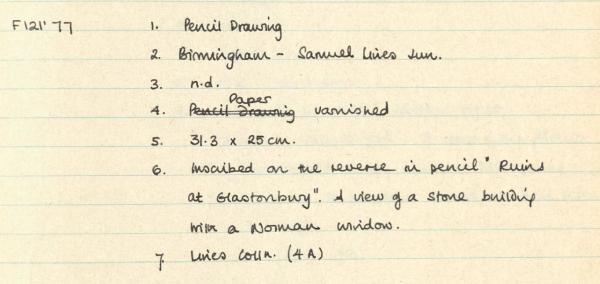 F121'77
1. Pencil Drawing
2. Birmingham - Samuel Lines Jun.
3. n.d.
4. Pencil Drawing Paper varnished
5. 31.3 x 25 cm.
6. Inscribed on the reverse in pencil "Ruins
at Glastonbury". A view of a stone building
with a Norman window.
7. Lines Colln. (4A)